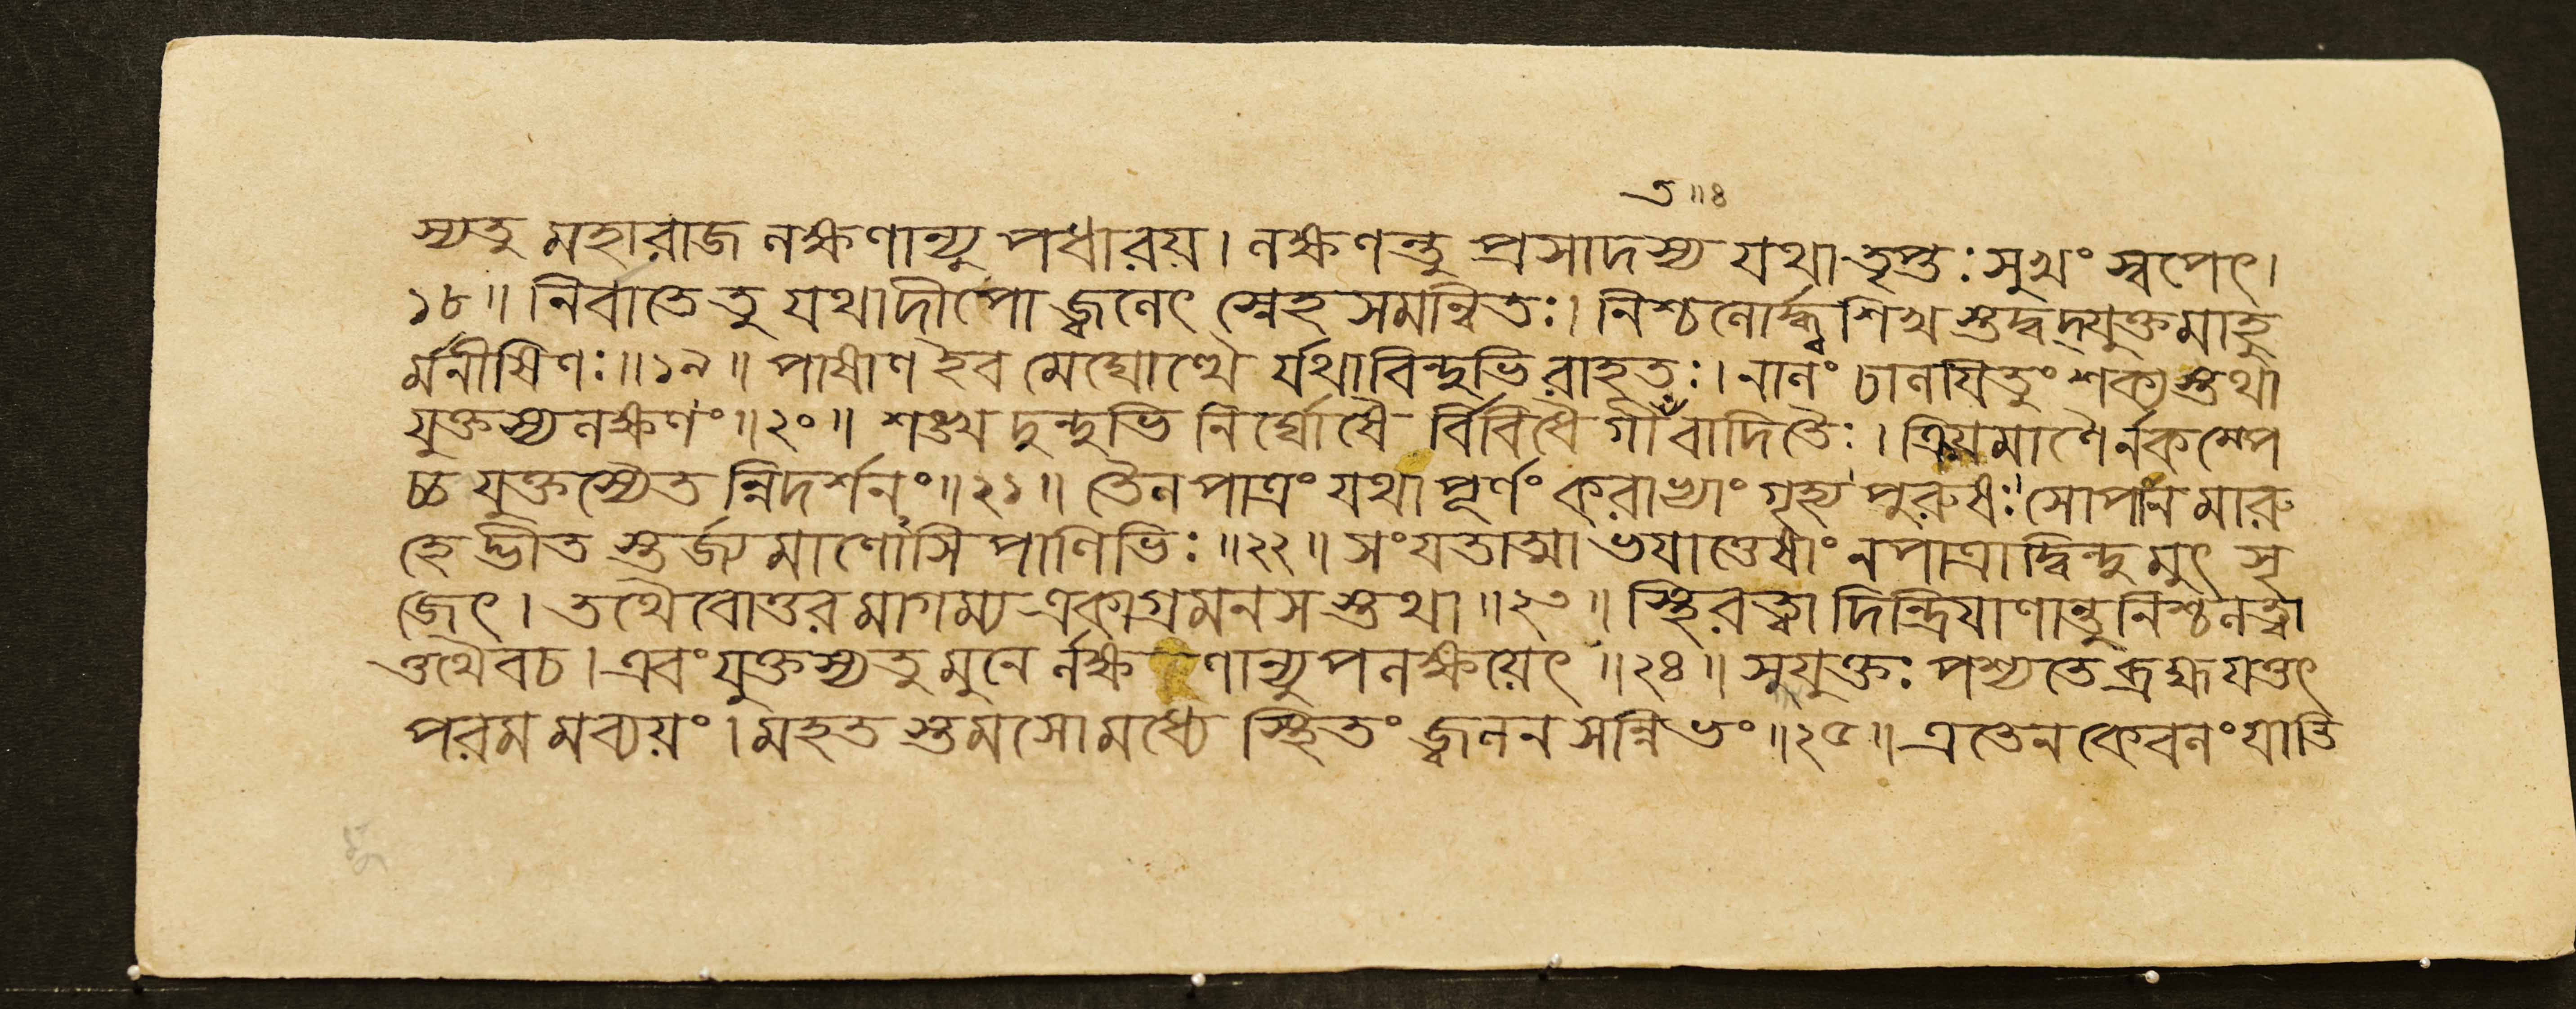 ত ॥৪
স্যতু মহারাজ লক্ষণান্যুপধারয়। লক্ষণন্তু প্রসাদস্য যথা তৃপ্তঃ সুখং স্বপেৎ।
১৮॥ নির্বাতে তু যথা দীপো জ্বলেৎ স্নেহ সমন্বিতঃ। নিশ্চলোর্দ্ধ্ব শিখ স্তদ্বদ্যুক্তমাহু
র্মনীষিণঃ॥১৯॥ পাষাণ ইব মেঘোত্থৈ র্যথা বিন্দুভি রাহতঃ। নালং চালযিতুং শক্য স্তথা
যুক্তস্য লক্ষণং॥২০॥ শঙ্খ দুন্দুভি নির্ঘোষৈ র্বিবিধৈ র্গীবাদিতৈঃ। ক্রিয়মাণৈর্নকম্পে
চ্চ যুক্তস্যৈত ন্নিদর্শনং॥২১॥ তৈলপাত্রং যথা পূর্ণং করাভ্যাং গৃহ্য পুরুষঃ সোপান মারু
হে দ্ভীত স্তর্জ্যমাণোসি পাণিভিঃ॥২২॥ সংযতাত্মা ভযাত্তেষাং নপাত্রাদ্বিন্দু মুৎ সৃ
জেৎ। তথৈবোত্তর মাগম্য একাগ্রমনস স্তথা॥২৩॥ স্থিরত্বাদিন্দ্রিযাণান্তু নিশ্চলত্বা
ত্তথৈবচ। এবং যুক্তস্য তু মুনে র্লক্ষণান্যুপলক্ষয়েৎ॥২৪॥ সুযুক্তঃ পশ্যতে ব্রহ্ম যত্তৎ
পরম মব্যয়ং। মহত স্তমসো মধ্যে স্থিতং জ্বলন সন্নিভং॥২৫॥ এতেন কেবলং যাতি